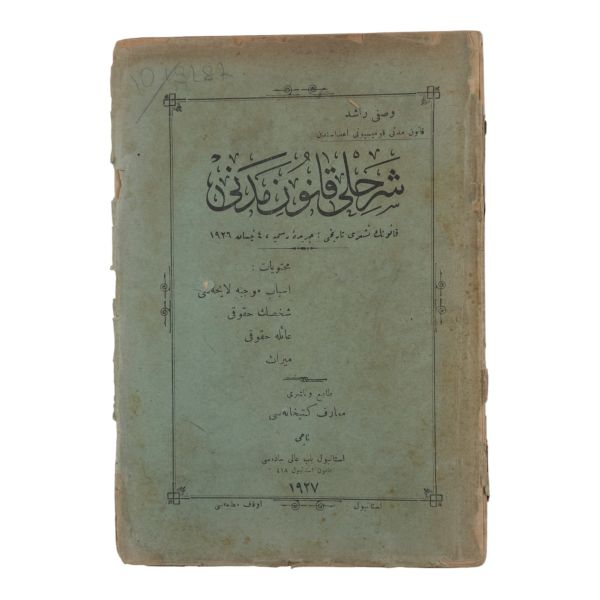 10/3287
وصفی راشد
قانون مدنی قومیسیونی اعضاسندن
شرحلی قانون مدنی
قانونك نشری تاریخی : جریدهٔ رسمیه ، ٤ نیسان ١٩٢٦
محتویات :
اسباب موجبه لایحه‌سی
شخصك حقوقی
عائله حقوقی
میراث
طابع و ناشری
معارف کتبخانه‌سی
ناجی
استانبول باب عالی جاده‌سی
استانبول ٤١٨
١٩٢٧
استانبول اوقاف مطبعه‌سی